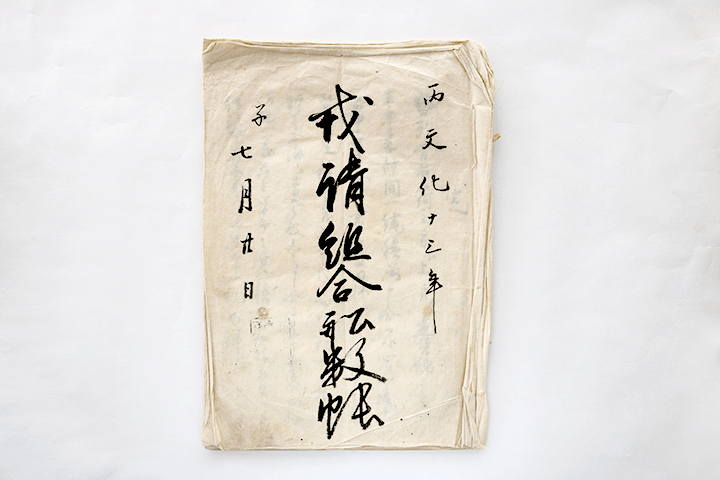 丙文化十三年
戎請組合舩数帳
子七月廿日